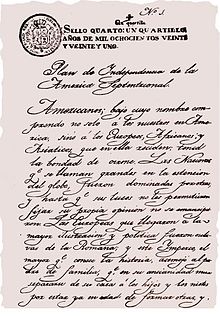 Nº 1
Un quartillo
SELLO QUARTO: UN QUARTILLO
AÑOS DE MIL OCHOCIENTOS VEINTE
Y VEINTE Y UNO.
Plan de Independencia de la
America Septentrional.
Americanos; bajo cuyo nombre com-
prendo no solo á los nacidos en Ame-
rica, sino á los Europeos, Africanos, y
Asiaticos, que en ella residen: tened
la bondad de oirme. Las Naciones
qe se llaman grandes en la estencion
del globo, fueron dominadas por otras;
y hasta qe sus luces no les permitieron
fijar su propia opinion no se emanci-
paron. Las Europeas que llegaron á la
mayor ilustracion y politica fueron escla-
vas de la Romana; y este Imperio el
mayor qe conoce la historia, asemejó al pa-
dre de familia, qe en su ancianidad mira
separarse de su casa á los hijos y los nietos
por estar ya en edad de formar otras, y